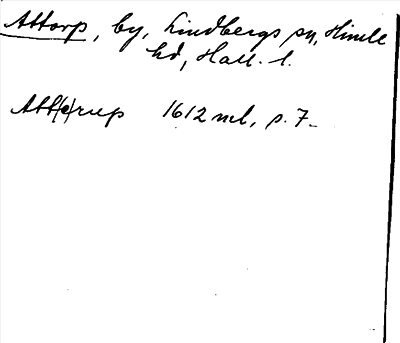 Attorp, by, Lindbergs sn, Himle
hd, Hall. l.
Att(e)rup 1612 ml, s. 7